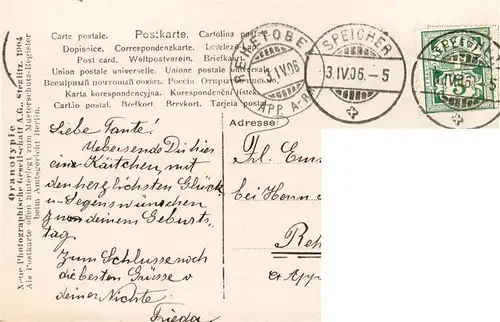 Carte postale. Postkarte. Cartolina pos
Dopisnice. Correspondenzkarte. Levelező-lap.
Post card. Weltpostverein. Briefkaart.
Union postale universelle. Unione postale universale.
Всемірный почтовый союзъ. Открытое письмо.
Karta korespondencyjna. Korespondenční lístek.
Cartão postal. Brefkort. Brevkort. Tarjeta postal.
REHETOBEL
3.IV.06
(APP. A-RH
SPEICHER
3.IV.06.-5
SPEICHER
IV.06.-5
Adresse:
Liebe Tante!
Uebersende Dir hier
ein Kärtchen, mit
den herzlichsten Glück
u Segenswünschen
zu deinem Geburts,
tag.
Zum Schlusse noch
die besten Grüsse v
deiner Nichte
Frieda
Frl. Em
bei Herrn
Reh
Ct App
Oranotypie
Neue Photographische Gesellschaft A.G., Steglitz. 1904
Als Postkarte offen hinterlegt zum Musterschutz-Register
beim Amtsgericht Berlin.